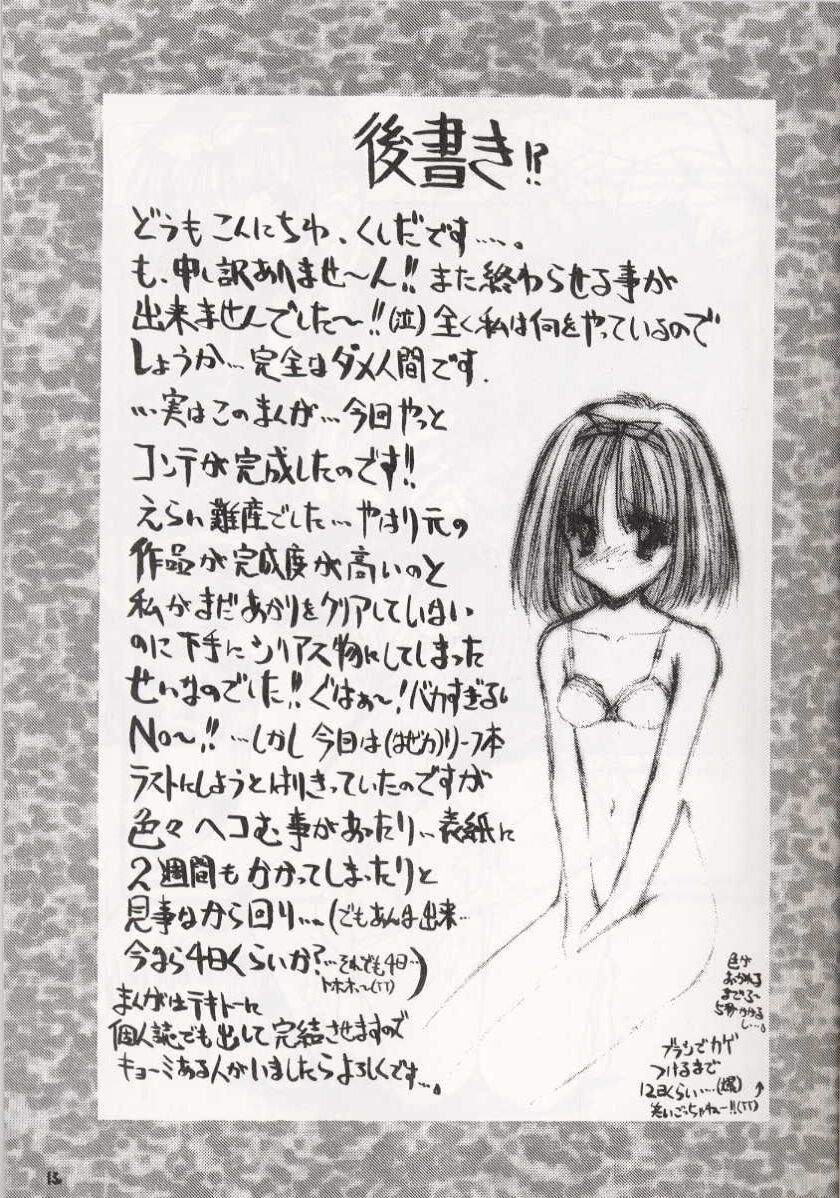 後書き!?
どうもこんにちわ、くしだです……。
も、申し訳ありませ〜ん!!また終わらせる事が
出来ませんでした〜!!(泣)全く私は何をやっているので
しょうか…完全なダメ人間です.
…実はこのまんが…今回やっと
コンテが完成したのです!!
えらい難産でした…やはり元の
作品が完成度が高いのと
私がまだあかりをクリアしていない
のに下手にシリアス物にしてしまった
せいなのでした!!ぐはぁ〜!バカすぎるい
No〜!!…しかし今日は(はぜか)リーフ本
ラストにしようとはりきっていたのですが
色々ヘコむ事があったり…表紙に
2週間もかかってしまったりと
見事なから回り…(でもあんな出来…
今なら4日くらいか?…それでも4日…
トホホ〜(TT))
まんがはテキトーに
個人誌でも出して完結させますので
キョーミある人がいましたらよろしくです…。
色々
ブラシでカゲ
つけるまで
12日くらい…(爆)
13